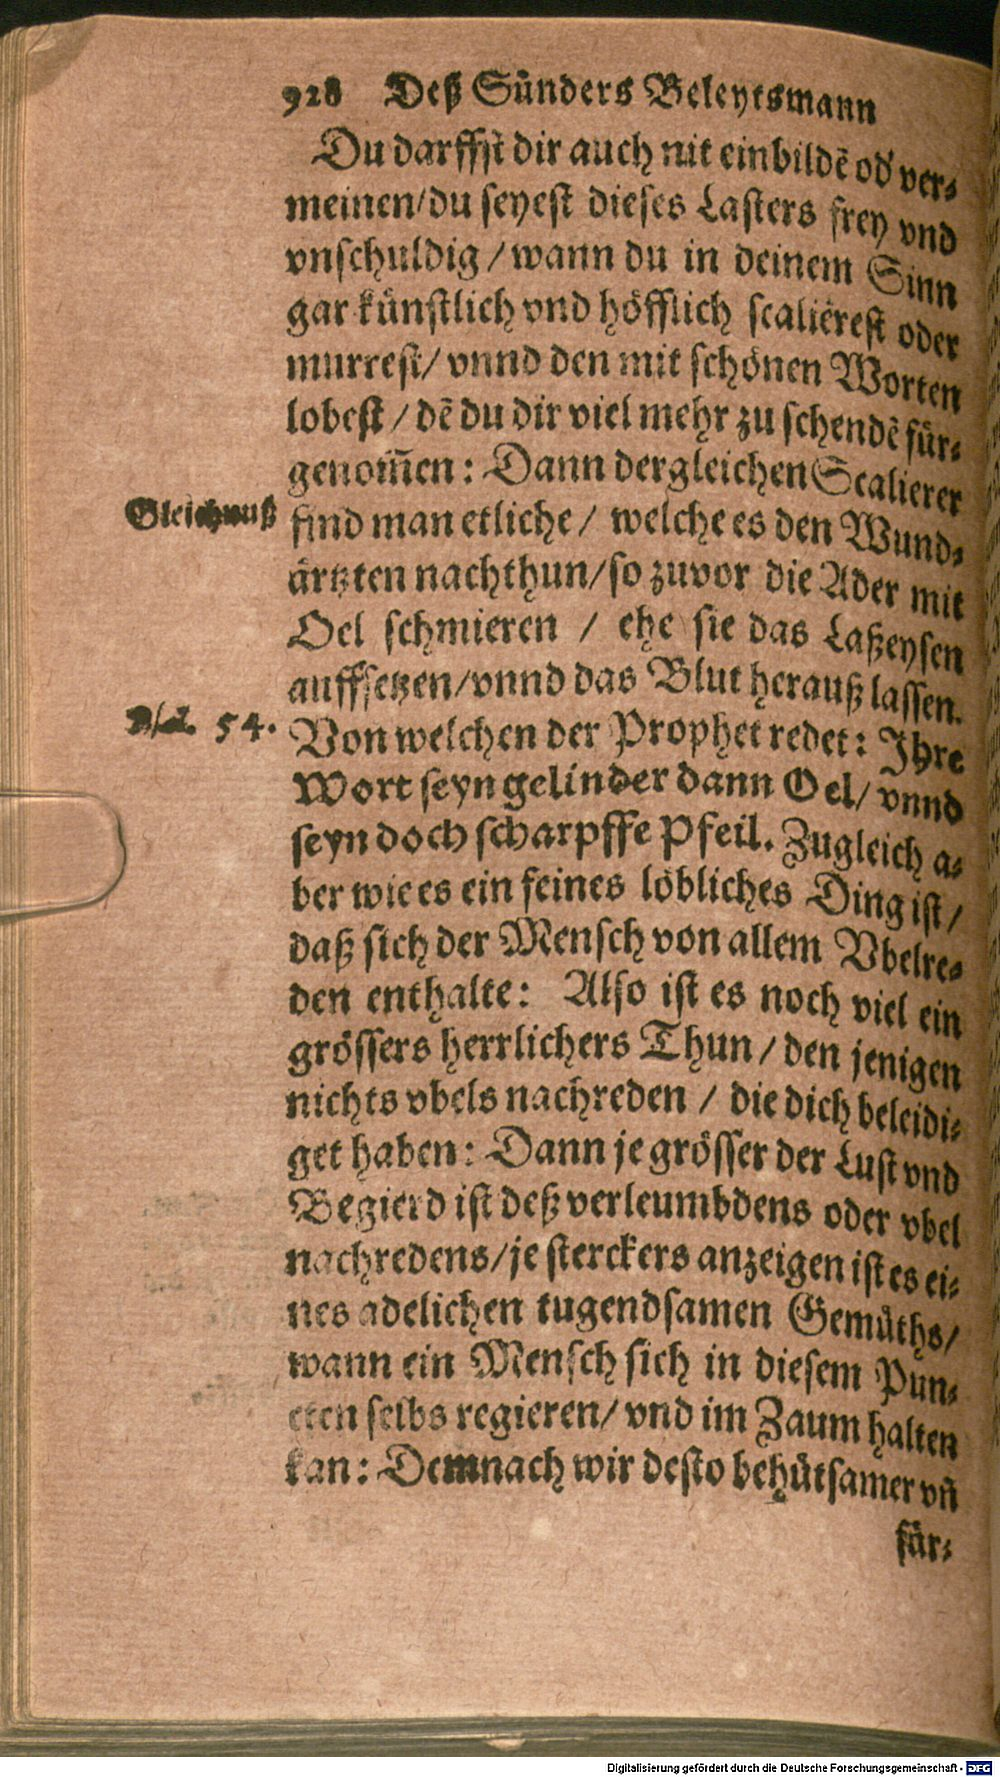 928 Deß Sünders Beleytsmann
Du darffst dir auch nit einbildẽ od' ver-
meinen/du seyest dieses Lasters frey vnd
vnschuldig/wann du in deinem Sinn
gar künstlich vnd höfflich scalierest oder
murrest/ vnnd den mit schönen Worten
lobest/dẽ du dir viel mehr zu schendẽ für-
genom̃en: Dann dergleichen Scalierer
Gleichnuß
find man etliche/ welche es den Wund-
ärtzten nachthun/so zuvor die Ader mit
Oel schmieren / ehe sie das Laßeysen
auffsetzen/vnnd das Blut herauß lassen.
Psal. 54.
Von welchen der Prophet redet: Ihre
Wort seyn gelinder dann Oel/ vnnd
seyn doch scharpffe Pfeil. Zugleich a-
ber wie es ein feines löbliches Ding ist/
daß sich der Mensch von allem Vbelre-
den enthalte: Also ist es noch viel ein
grössers herrlichers Thun/den jenigen
nichts vbels nachreden / die dich beleidi-
get haben: Dann je grösser der Lust vnd
Begierd ist deß verleumbdens oder vbel
nachredens/je sterckers anzeigen ist es ei-
nes adelichen tugendsamen Gemüths/
wann ein Mensch sich in diesem Pun-
cten selbs regieren/ vnd im Zaum halten
kan: Demnach wir desto behütsamer vñ
für-
Digitalisierung gefördert durch die Deutsche Forschungsgemeinschaft - DFG